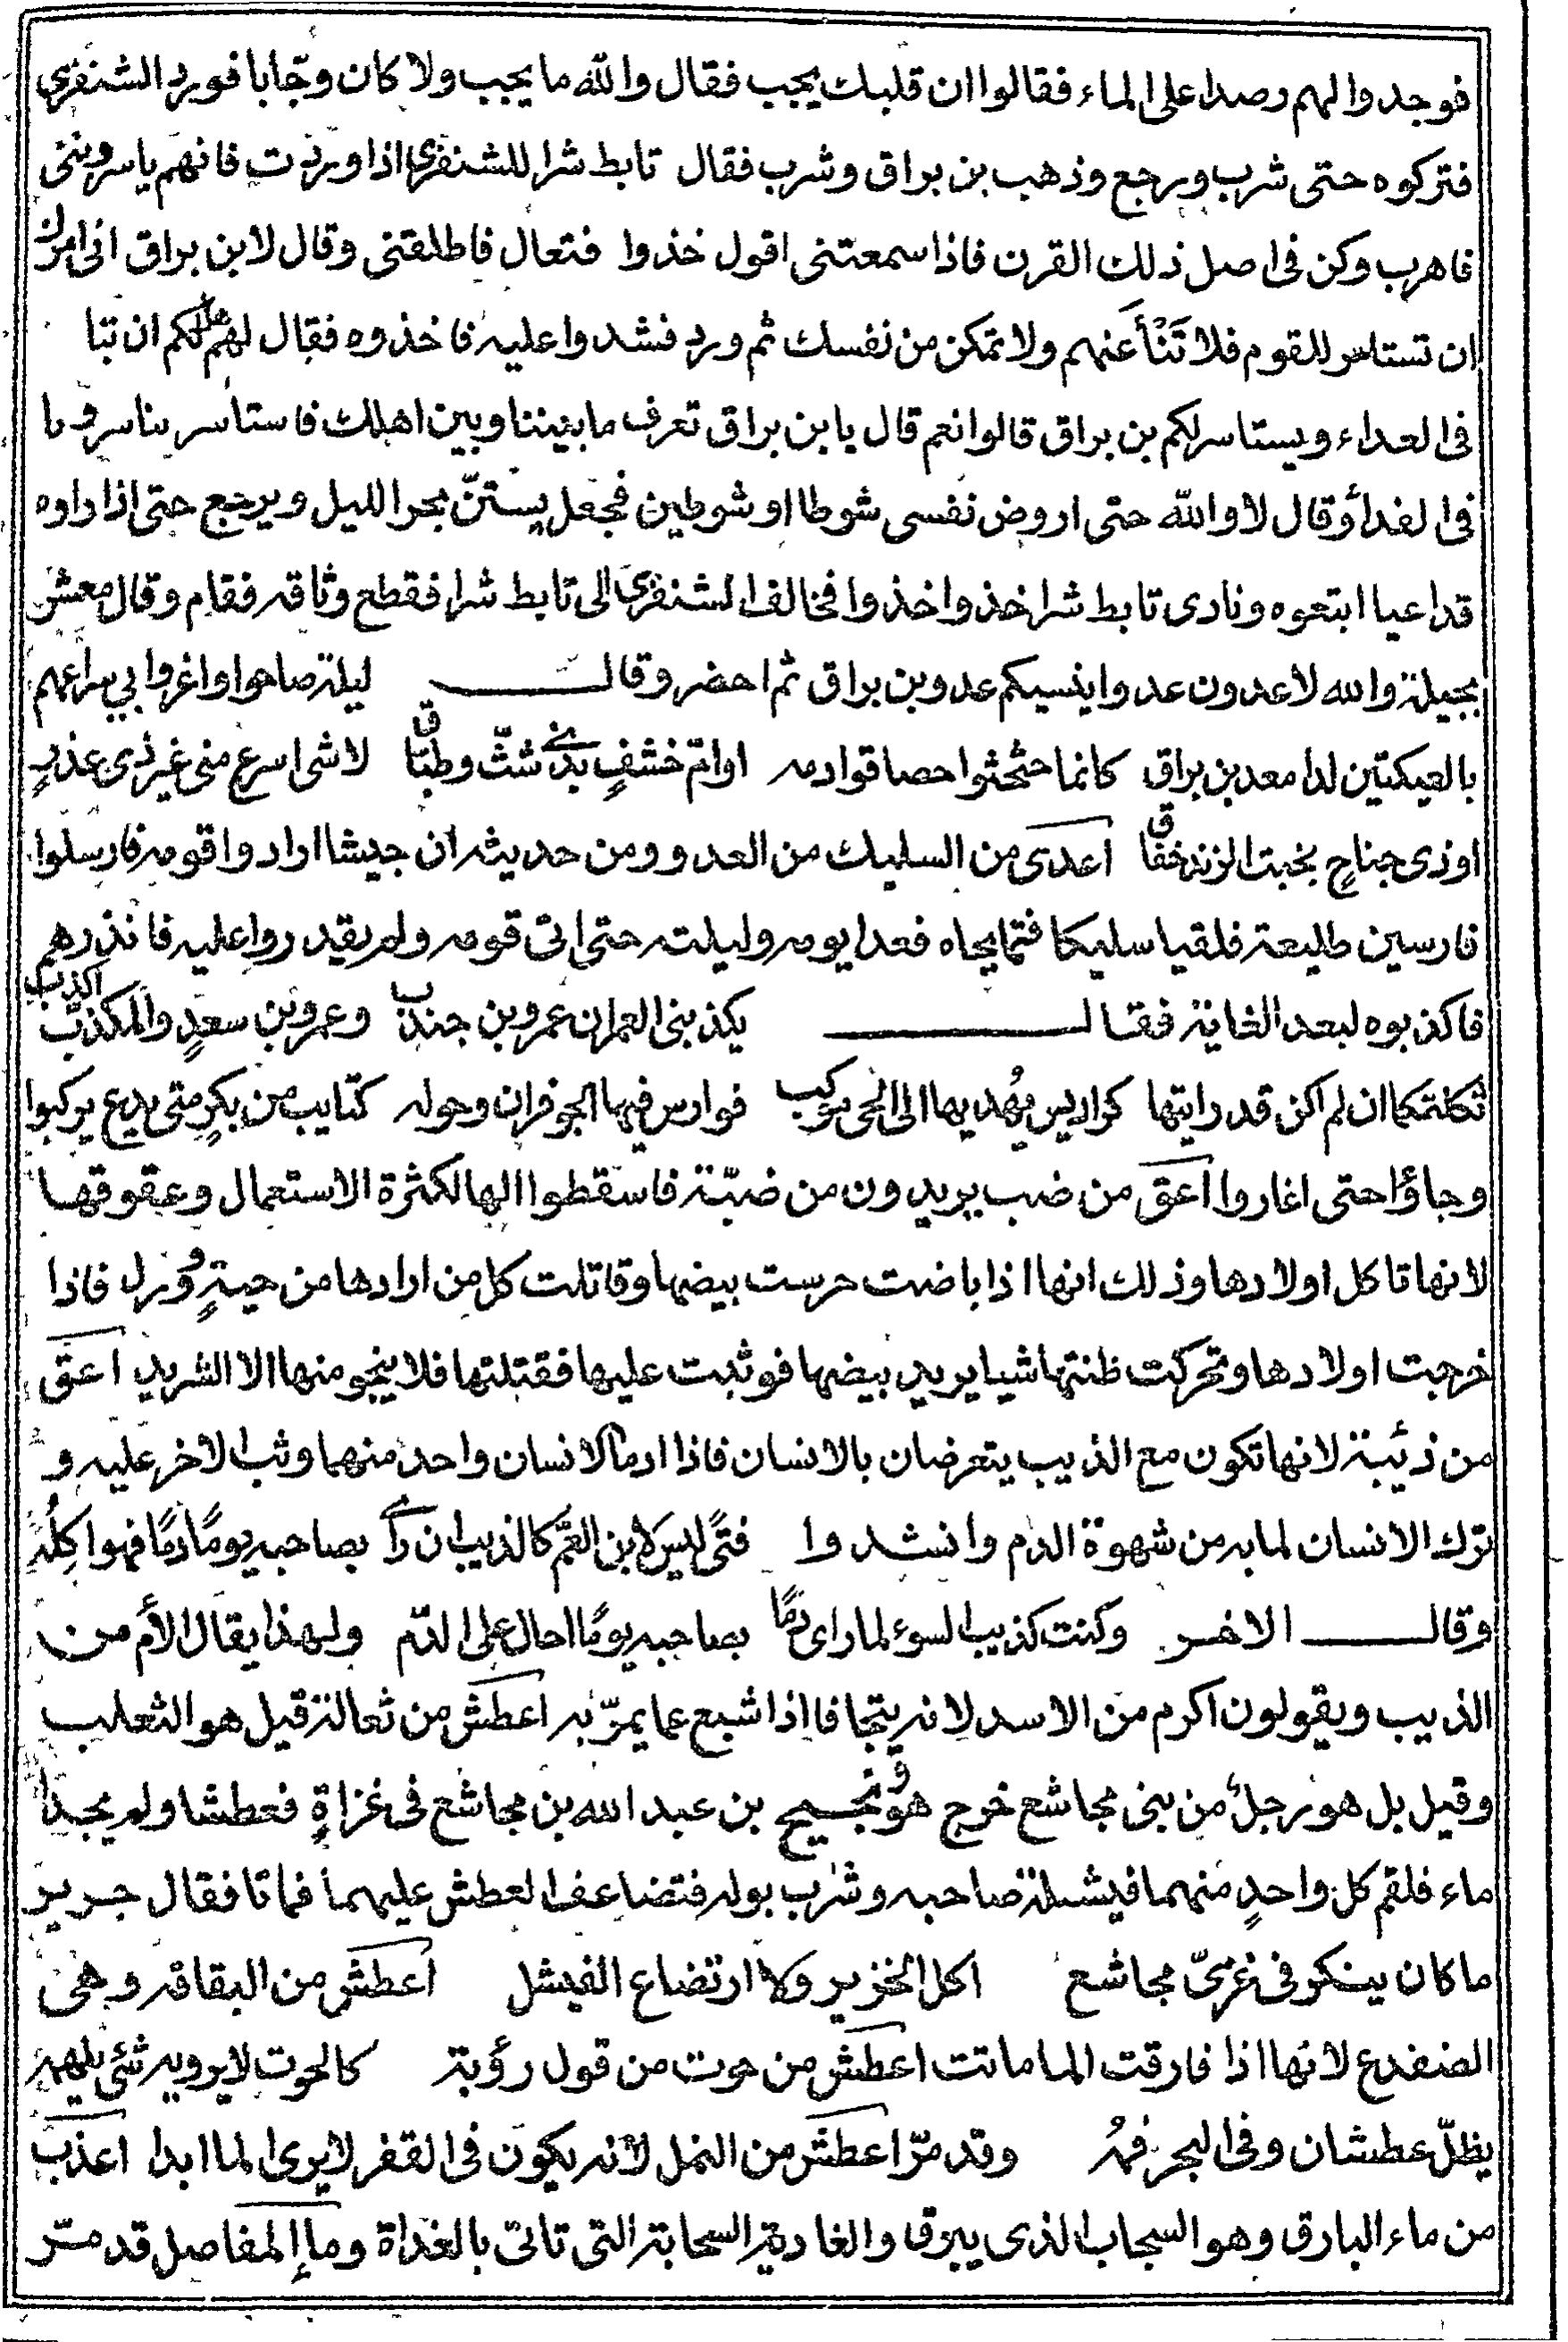 فوجدوا لهم رصدا على الماء فقالوا ان قلبك يجب فقال والله ما يجب ولا كان وجّابا فورد الشنفرى
فتركوه حتى شرب ورجع وذهب بن براق وشرب فقال تابط شرا للشنفرى اذا وردت فانهم ياسروننى
فاهرب وكن فى اصل ذلك القرن فاذا سمعتنى اقول خذوا فتعال فاطلقنى وقال لابن براق انى امرك
ان تستاسر للقوم فلا تَنْأَ عنهم ولا تمكن من نفسك ثم ورد فشدوا عليه فاخذوه فقال لهم هل لكم ان تبا
فى العداء ويستاسر لكم بن براق قالوا نعم قال يا بن براق تعرف ما بيننا وبين اهلك فاستأسر يياسرونا
فى الفدأ وقال لا والله حتى اروض نفسى شوطا او شوطين فجعل يستنّ بحر الليل ويرجع حتى اذا راوه
قد اعيا ابتعوه ونادى تابط شرا خذوا خذوا فخالف الشنفرى الى تابط شرا فقطع وثاقه فقام وقال معشر
بجيلة والله لاعدون عدوا ينسيكم عدو بن براق ثم احضر وقال ليلة صاحوا واغروا بي سراعهم
بالعيكتين لدا معد بن براق كانما حثحثوا حصا قوادمه او امّ خشفٍ بذى شثّ وطبّاق لا شى اسرع منى غير ذى عذرٍ
او ذى جناحٍ بخبت الزند خفاق اعدى من السليك من العدو ومن حديثه ان جيشا ارادوا قومه فارسلوا
فارسين طليعة فلقيا سليكا فتمايجاه فعدا يومه وليلته حتى اتى قومه ولم يقدروا عليه فانذرهم
فاكذبوه لبعد الغاية فقال يكذبنى العمران عمرو بن جندب وعمرو بن سعدٍ والمكذّب اكذب
ثكلتكما ان لم اكن قد رايتها كراديس يُهديها الى الحى موكب فوارس فيها الحوفزان وحوله كتايب من بكرٍ متى يدع يركبوا
وجاؤا حتى اغاروا اعق من ضب يريدون من ضبّة فاسقطوا الها لكثرة الاستعمال وعقوقها
لانها تاكل اولادها وذلك انها اذا باضت حرست بيضها وقاتلت كل من ارادها من حيةٍ وورل فاذا
خرجت اولادها وتحركت ظنتها شيا يريد بيضها فوثبت عليها فقتلتها فلا ينجو منها الا الشريد اعق
من ذئبة لانها تكون مع الذيب يتعرضان بالانسان فاذا ادما الانسان واحد منهما وثب الاخر عليه و
ترك الانسان لما به من شهوة الدم وانشدوا فتىً ليس لابن العمّ كالذيب ان رأى بصاحبه يومًا دمًا فهوا كِلُه
وقال الاخر وكنت كذيب السوء لما راى دمًا بصاحبه يومًا احال على الدّم ولهذا يقال الأم من
الذيب ويقولون اكرم من الاسد لانه يتجافا اذا شبع عما يمرّ به اعطش من ثعالة قيل هو الثعلب
وقيل بل هو رجلٌ من بنى مجاشع خرج هو ونجيح بن عبد الله بن مجاشع فى غزاةٍ فعطشا ولم يجدا
ماء فلقم كل واحدٍ منهما فيشلة صاحبه وشرب بوله فتضاعف العطش عليهما فماتا فقال جرير
ما كان ينكر فى غزىّ مجاشع اكل الخزير ولا ارتضاع الفيشل اعطش من البقاقه وهى
الضفدع لانها اذا فارقت الما ماتت اعطش من حوت من قول رؤبة كالحوت لا يرويه شئى يلهمه
يظلّ عطشان وفى البحر فمُه وقد مرّ اعطش من النمل لانه يكون فى القفر لا يرى الما ابدا اعذب
من ماء البارق وهو السحاب الذى يبرق والغادية السحابة التى تاتى بالغداة وماء المفاصل قد مرّ